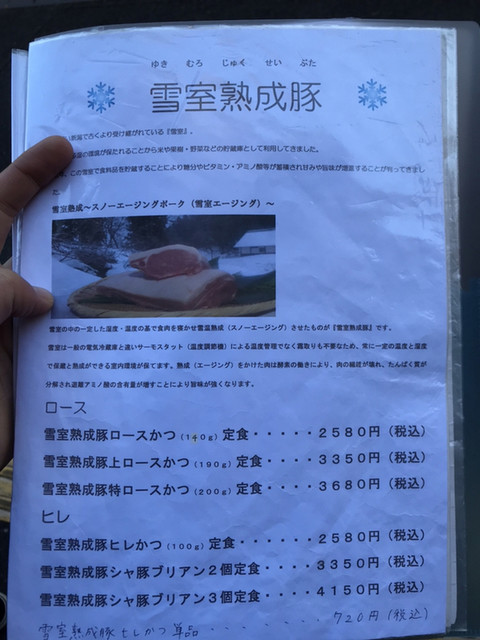 ゆき むろ じゅく せい ぶた
雪室熟成豚
新潟で古くより受け継がれている『雪室』。
湿の環境が保たれることから米や果樹・野菜などの貯蔵庫として利用してきました。
この雪室で食料品を貯蔵することにより糖分やビタミン・アミノ酸等が蓄積され甘みや旨味が増すことが判ってきまし
た。
雪室熟成～スノーエージングポーク（雪室エージング）～
雪室の中の一定した温度・湿度の基で食肉を寝かせ雪温熟成（スノーエージング）させたものが『雪室熟成豚』です。
雪室は一般の電気冷蔵庫と違いサーモスタット（温度調節機）による温度管理でなく霜取りも不要なため、常に一定の温度と湿度
で保蔵と熟成ができる室内環境が保てます。熟成（エージング）をかけた肉は酵素の働きにより、肉の組織が壊れ、たんぱく質が
分解され遊離アミノ酸の含有量が増すことにより旨味が強くなります。
ロース
雪室熟成豚ロースかつ（140g）定食・・・・・２５８０円（税込）
雪室熟成豚上ロースかつ（190g）定食・・・・３３５０円（税込）
雪室熟成豚特ロースかつ（200g）定食・・・・３６８０円（税込）
ヒレ
雪室熟成豚ヒレかつ（100g）定食・・・・・・２５８０円（税込）
雪室熟成豚シャ豚ブリアン２個定食・・・・３３５０円（税込）
雪室熟成豚シャ豚ブリアン３個定食・・・・４１５０円（税込）
雪室熟成豚ヒレかつ単品・・・・・・・・720円（税込）